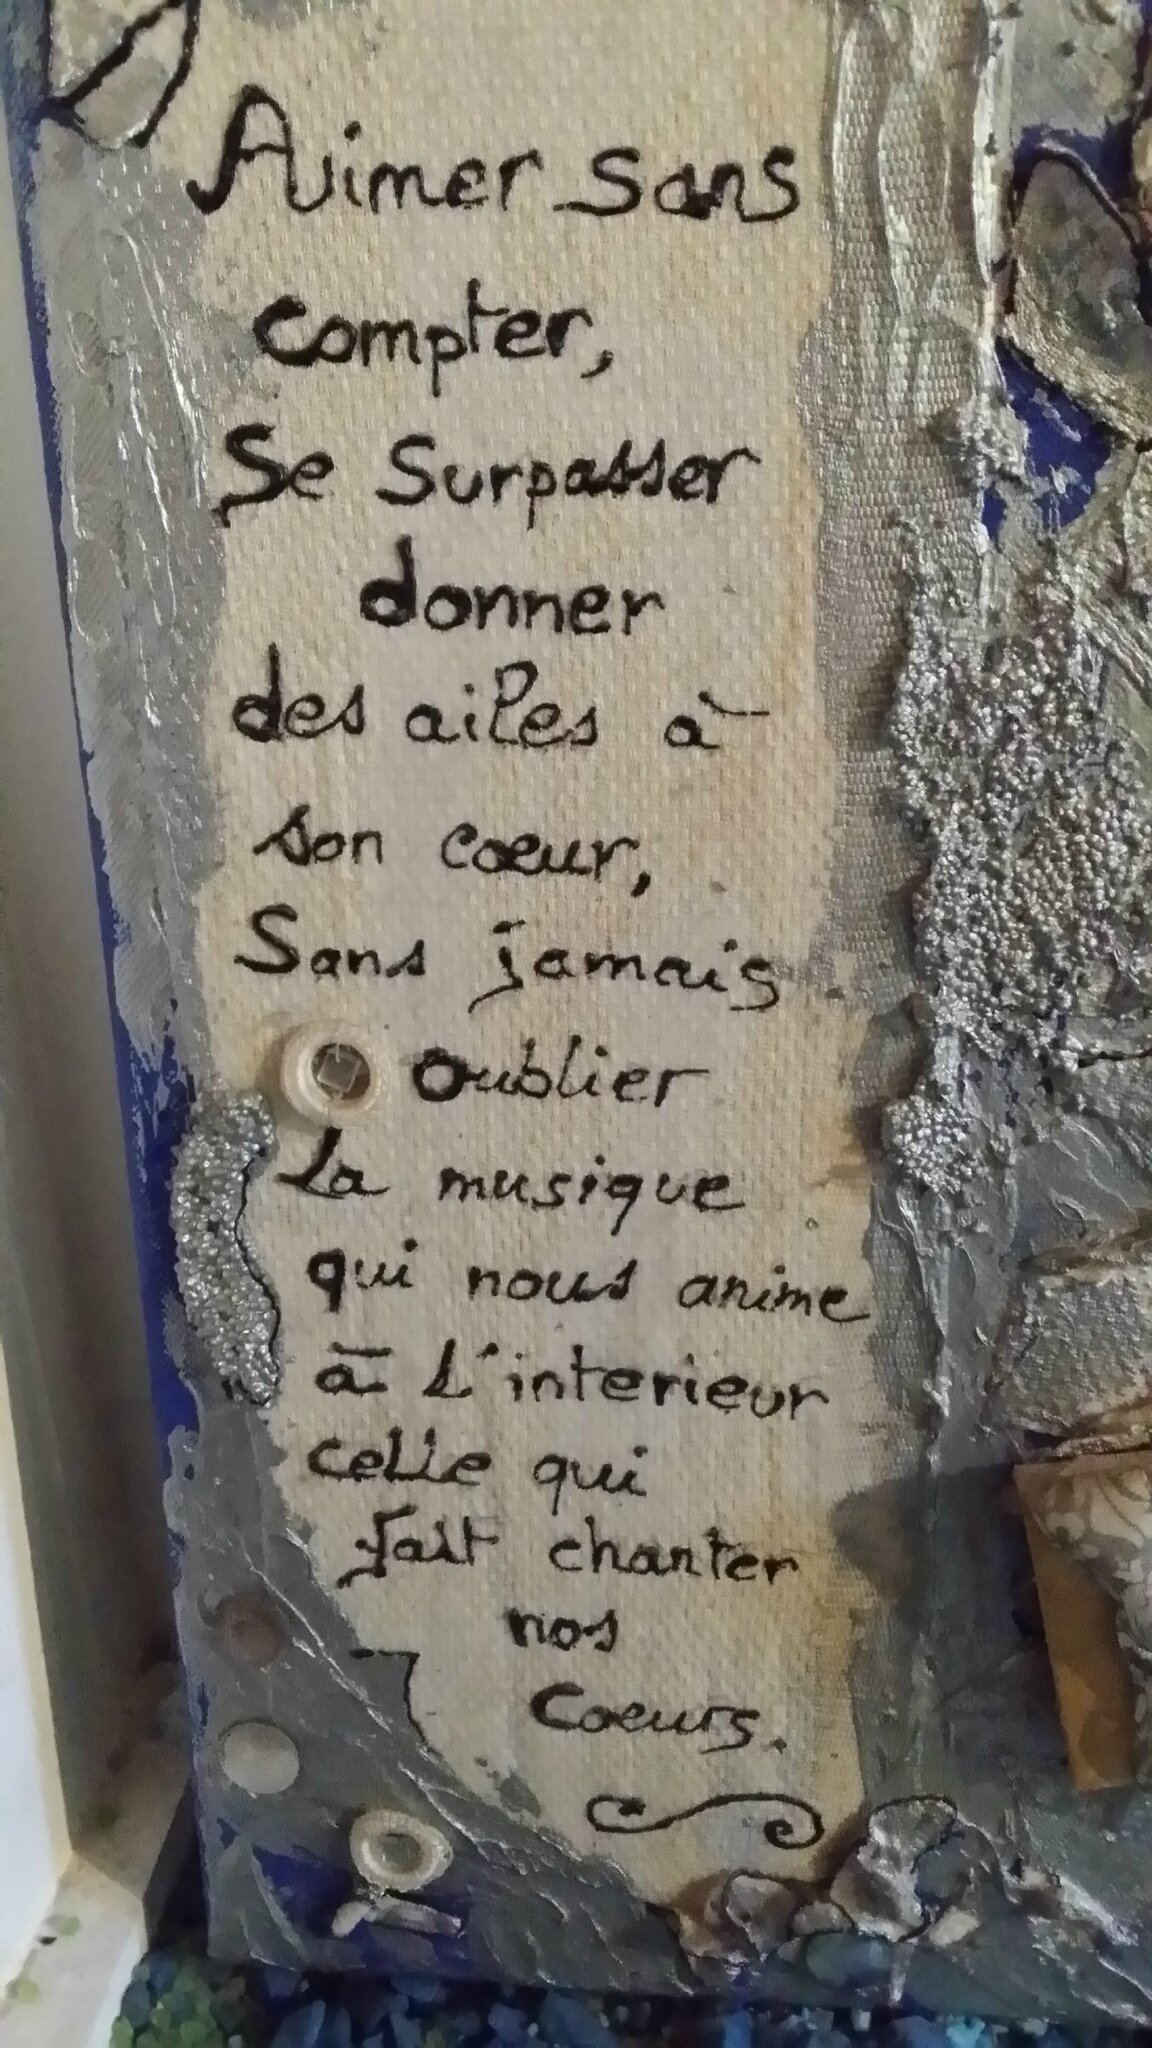 Aimer sans
compter,
Se surpasser
donner
des ailes à
son coeur,
Sans jamais
oublier
La musique
qui nous anime
à l'interieur
celle qui
fait chanter
nos
Coeurs.